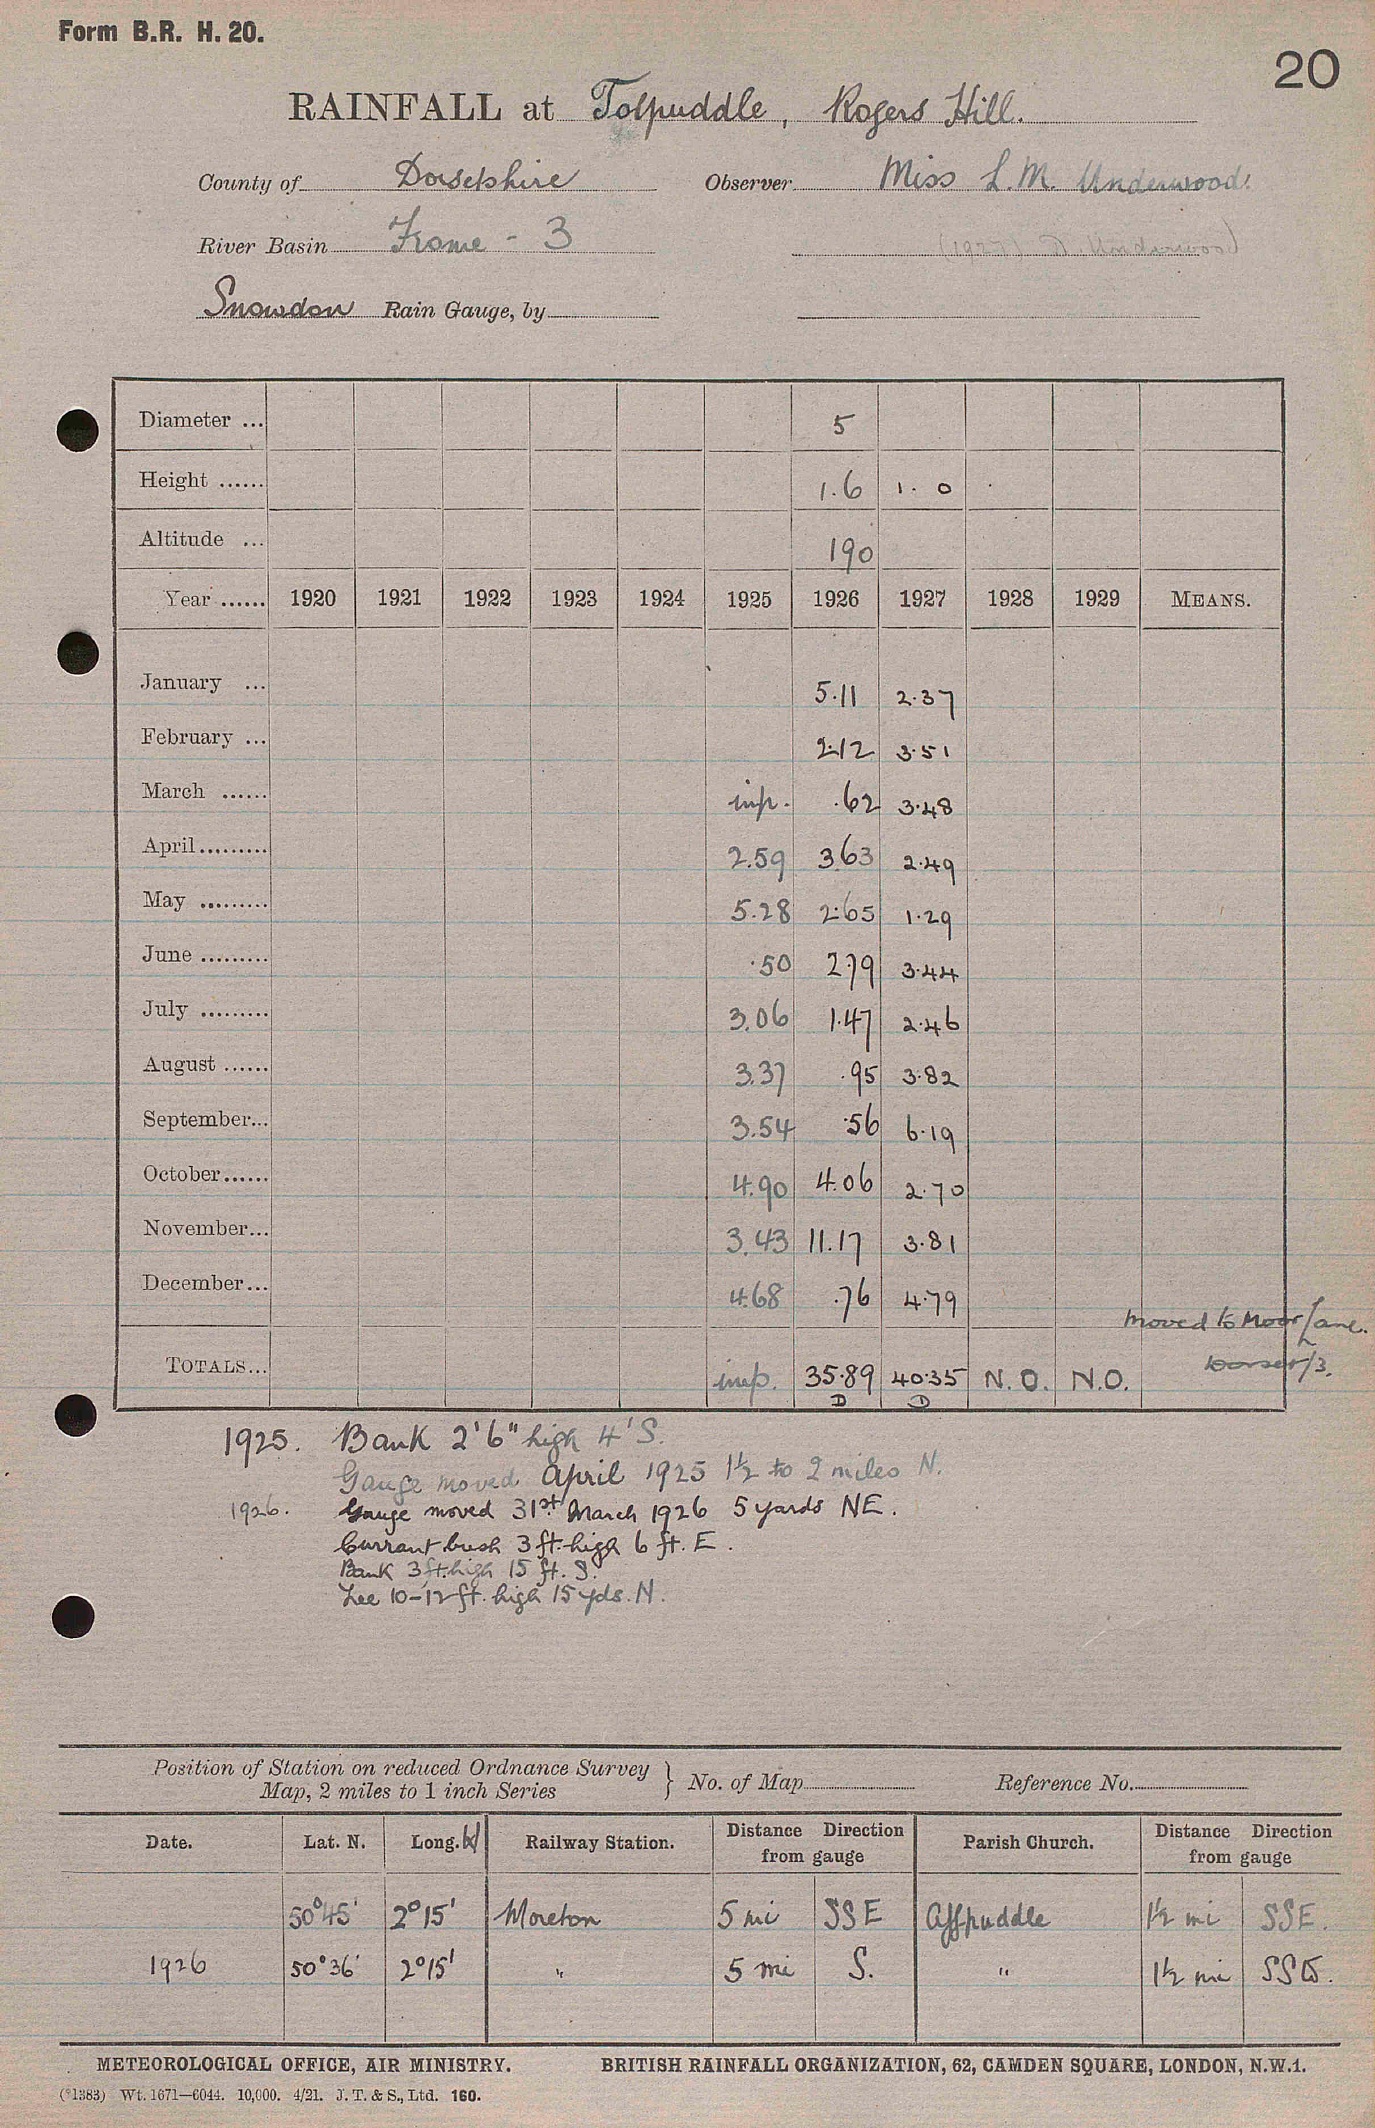 Form B.R. H. 20.
20
RAINFALL at Tolpuddle, Rogers Hill.
County of Dorsetshire Observer Miss L. M. Underwood.
River Basin Frome - 3 (1925) Underwood
Snowdon Rain Gauge, by
Diameter ... 5
Height ...... 1.6 1.0
Altitude ... 190
Year ...... 1920 1921 1922 1923 1924 1925 1926 1927 1928 1929 MEANS.
January ... 5.11 2.37
February ... 2.12 3.51
March ...... inp. .62 3.48
April......... 2.59 3.63 2.49
May ......... 5.28 2.65 1.29
June ......... .50 2.79 3.44
July ......... 3.06 1.47 2.46
August ...... 3.37 .95 3.82
September... 3.54 .56 6.19
October...... 4.90 4.06 2.70
November... 3.43 11.17 3.81
December... 4.68 .76 4.79
moved to Moor Lane.
Dorset/3.
TOTALS... inp. 35.89 40.35 N.O. N.O.
D D
1925. Bank 2'6" high 4' S.
Gauge moved April 1925 1½ to 2 miles N.
1926. Gauge moved 31st March 1926 5 yards NE.
Currant bush 3 ft. high 6 ft. E.
Bank 3 ft. high 15 ft. S.
Tree 10-12 ft. high 15 yds. N.
Position of Station on reduced Ordnance Survey
Map, 2 miles to 1 inch Series } No. of Map Reference No.
Date. Lat. N. Long. W Railway Station. Distance Direction from gauge Parish Church. Distance Direction from gauge
50°45' 2°15' Moreton 5 mi SSE Affpuddle 1½ mi SSE.
1926 50°36' 2°15' " 5 mi S. " 1½ mi SSW.
METEOROLOGICAL OFFICE, AIR MINISTRY. BRITISH RAINFALL ORGANIZATION, 62, CAMDEN SQUARE, LONDON, N.W.1.
(*1383) Wt. 1671—6044. 10,000. 4/21. J. T. & S., Ltd. 160.